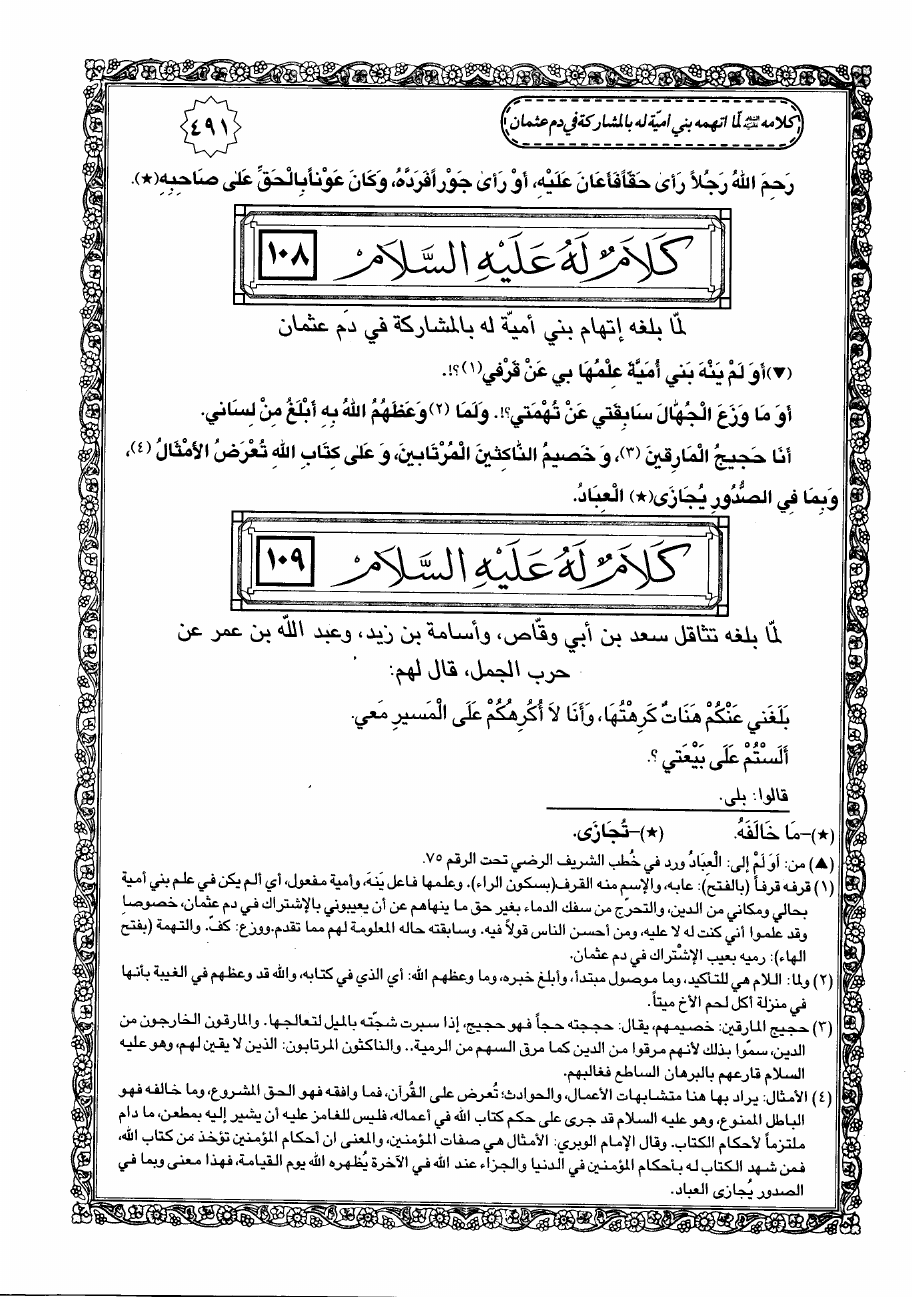 كلامه عليه السلام لمّا اتهمه بني أميّة له بالمشاركة في دم عثمان
٤٩١
رَحِمَ اللهُ رَجُلاً رَأى حَقّاً فَأَعَانَ عَلَيْهِ، أَوْ رَأى جَوْراً فَرَدَّهُ، وَكَانَ عَوْناً بِالْحَقِّ عَلى صَاحِبِهِ(★).
كَلَامٌ لَهُ عَلَيْهِ السَّلَامُ ١٠٨
لمّا بلغه إتهام بني أميّة له بالمشاركة في دَم عثمان
(▼) أَوَ لَمْ يَنْهَ بَني أُمَيَّةَ عِلْمُهَا بي عَنْ قَرْفي(١)؟!.
أَوَ مَا وَزَعَ الْجُهَّالَ سَابِقَتي عَنْ تُهْمَتي؟!. وَلَمَا (٢) وَعَظَهُمُ اللهُ بِهِ أَبْلَغُ مِنْ لِسَاني.
أَنَا حَجيجُ الْمَارِقينَ (٣)، وَ خَصيمُ النَّاكِثينَ الْمُرْتَابينَ، وَ عَلى كِتَابِ اللهِ تُعْرَضُ الأَمْثَالُ (٤)،
وَبِمَا فِي الصُّدُورِ يُجَازَى(★) الْعِبَادُ.
كَلَامٌ لَهُ عَلَيْهِ السَّلَامُ ١٠٩
لمّا بلغه تثاقل سعد بن أبي وقّاص، وأسامة بن زيد، وعبد اللّه بن عمر عن
حرب الجمل، قال لهم:
بَلَغَني عَنْكُمْ هَنَاتٌ كَرِهْتُهَا، وَأَنَا لاَ أُكْرِهُكُمْ عَلَى الْمَسيرِ مَعي.
أَلَسْتُمْ عَلَى بَيْعَتي ؟.
قالوا: بلى.
(★)-مَا خَالَفَهُ. (★)-تُجَازَى.
(▲) من: أَوَ لَمْ إلى: الْعِبَادُ ورد في خُطب الشريف الرضي تحت الرقم ٧٥.
(١) قرفه قرفاً (بالفتح): عابه، والإسم منه القرف(بسكون الراء). وعلمها فاعل يَنهَ، وأمية مفعول، أي ألم يكن في علم بني أمية
بحالي ومكاني من الدين، والتحرّج من سفك الدماء بغير حق ما ينهاهم عن أن يعيبوني بالإشتراك في دم عثمان، خصوصاً
وقد علموا أني كنت له لا عليه، ومن أحسن الناس قولاً فيه. وسابقته حاله المعلومة لهم مما تقدم.ووزع: كفّ. والتهمة (بفتح
الهاء): رميه بعيب الإشْتراك في دم عثمان.
(٢) ولما: اللام هي للتأكيد، وما موصول مبتدأ، وأبلغ خبره، وما وعظهم الله: أي الذي في كتابه، والله قد وعظهم في الغيبة بأنها
في منزلة أكل لحم الأخ ميتاً.
(٣) حجيج المارقين: خصيمهم، يقال: حججته حجاً فهو حجيج، إذا سبرت شجّته بالميل لتعالجها. والمارقون الخارجون من
الدين، سمّوا بذلك لأنهم مرقوا من الدين كما مرق السهم من الرمية.. والناكثون المرتابون: الذين لا يقين لهم، وهو عليه
السلام قارعهم بالبرهان الساطع فغالبهم.
(٤) الأمثال: يراد بها هنا متشابهات الأعمال، والحوادث؛ تُعرض على القُرآن، فما وافقه فهو الحق المشروع، وما خالفه فهو
الباطل الممنوع، وهو عليه السلام قد جرى على حكم كتاب الله في أعماله، فليس للغامز عليه أن يشير إليه بمطعن، ما دام
ملتزماً لأحكام الكتاب. وقال الإمام الوبري: الأمثال هي صفات المؤمنين، والمعنى ان أحكام المؤمنين تؤخذ من كتاب الله،
فمن شهد الكتاب له بأحكام المؤمنين في الدنيا والجزاء عند الله في الآخرة يُظهره الله يوم القيامة، فهذا معنى وبما في
الصدور يُجازى العباد.